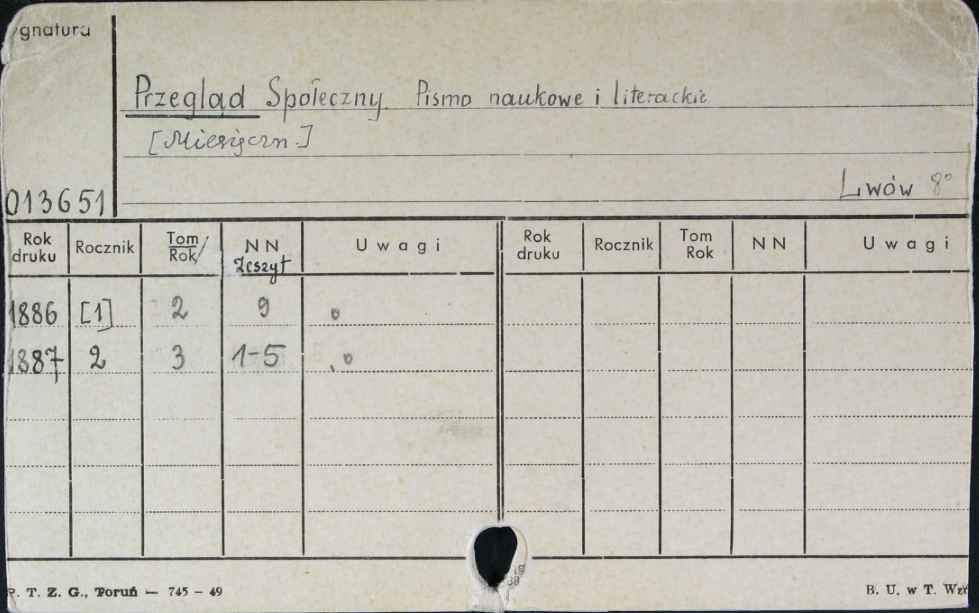 ygnatura
Przegląd Społeczny. Pismo naukowe i literackie
[Miesięczn.]
013651
Lwów 8°
Rok druku Rocznik Tom Rok NN Zeszyt Uwagi Rok druku Rocznik Tom Rok NN Uwagi
1886 [1] 2 9
1887 2 3 1-5
P. T. Z. G., Toruń — 745 – 49
B. U. w T. Wzó